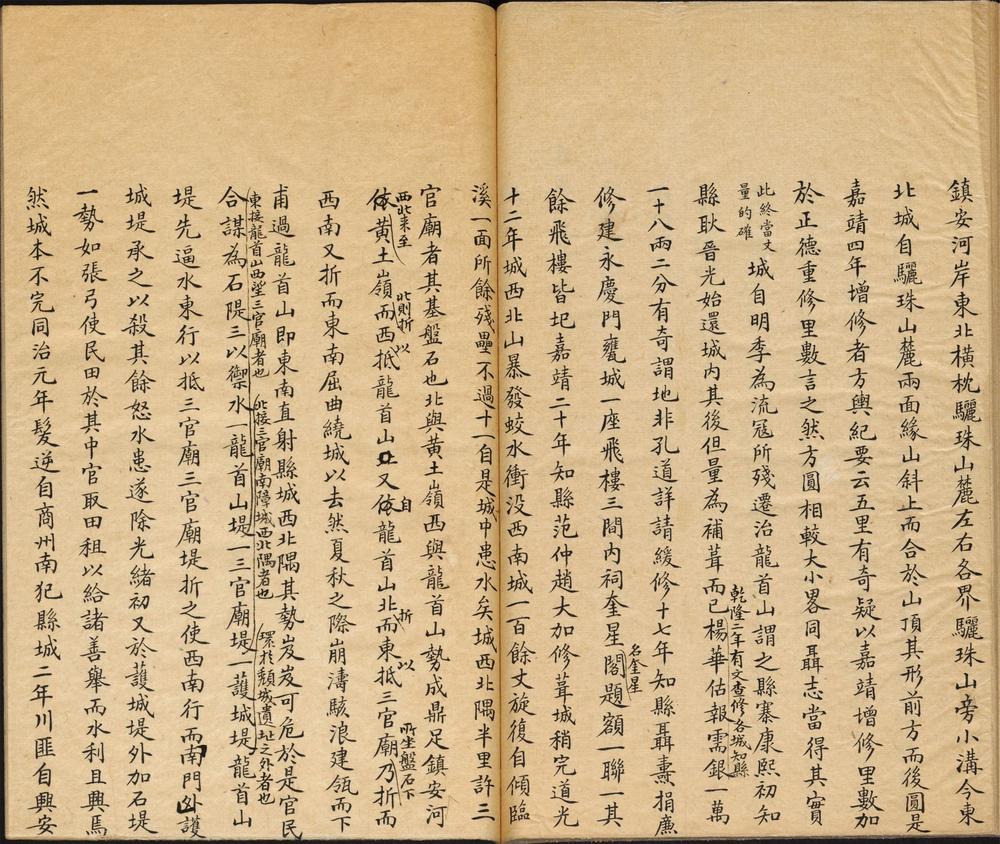 鎮安河岸東北橫枕驪珠山麓左右各界驪珠山旁小溝今東
北城自驪珠山麓兩面緣山斜上而合於山頂其形前方而後圓是
嘉靖四年增修者方輿紀要云五里有奇疑以嘉靖增修里數加
於正德重修里數言之然方圓相較大小畧同聶志當得其實
此終當丈
量的確
城自明季為流寇所殘遷治龍首山謂之縣寨康熙初知
縣耿晉光始還城內其後但量為補葺而已
乾隆二年有文查修各城知縣
楊華估報需銀一萬
一十八兩二分有奇謂地非孔道詳請緩修十七年知縣聶燾捐廉
修建永慶門甕城一座飛樓三間內祠奎星閣題額一聯一其
名奎星
餘飛樓皆圮嘉靖二十年知縣范仲趙大加修葺城稍完道光
十二年城西北山暴發蛟水衝没西南城一百餘丈旋復自傾臨
溪一面所餘殘壘不過十一自是城中患水矣城西北隅半里許三
官廟者其基盤石也北與黃土嶺西與龍首山勢成鼎足鎮安河
西北来至
依黃土嶺而西抵龍首山又依龍首山北而東抵三官廟乃折而
此則折以
自
折以
所坐盤石下
西南又折而東南屈曲繞城以去然夏秋之際崩濤駭浪建瓴而下
甫過龍首山即東南直射縣城西北隅其勢岌岌可危於是官民
合謀為石隄三以禦水一龍首山堤一三官廟堤一護城堤龍首山
東接龍首山西望三官廟者也
北接三官廟南障城西北隅者也
環於頹城遺址之外者也
堤先逼水東行以抵三官廟三官廟堤折之使西南行而南門外護
城堤承之以殺其餘怒水患遂除光緒初又於護城堤外加石堤
一勢如張弓使民田於其中官取田租以給諸善舉而水利且興焉
然城本不完同治元年髮逆自商州南犯縣城二年川匪自興安